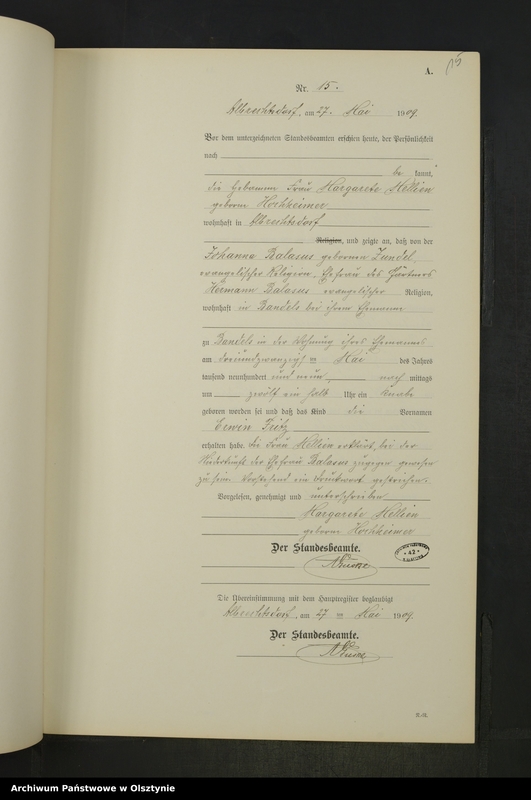 A.
Nr. 15.
Albrechtsdorf, am 27. Mai 1909.
Vor dem unterzeichneten Standesbeamten erschien heute, der Persönlichkeit
nach
be kannt,
die Hebamme Frau Margarete Hellien
geboren Hochheimer
wohnhaft in Albrechtsdorf
Religion, und zeigte an, daß von der
Johanna Balasus geborenen Zundel
evangelischer Religion, Ehefrau des Gärtners
Hermann Balasus evangelischer Religion,
wohnhaft in Bandels bei ihrem Ehemanne
zu Bandels in der Wohnung ihres Ehemannes
am dreiundzwanzigsten Mai des Jahres
tausend neunhundert und neun nach mittags
um zwölf ein halb Uhr ein Knabe
geboren worden sei und daß das Kind die Vornamen
Erwin Fritz
erhalten habe. Die Frau Hellien erklärt, bei der
Niederkunft der Ehefrau Balasus zugegen gewesen
zu sein. Vorstehend ein Druckwort gestrichen.
Vorgelesen, genehmigt und unterschrieben
Margarete Hellien
geboren Hochheimer
Der Standesbeamte.
Die Übereinstimmung mit dem Hauptregister beglaubigt
Albrechtsdorf, am 27 Mai 1909.
Der Standesbeamte.
Archiwum Państwowe w Olsztynie